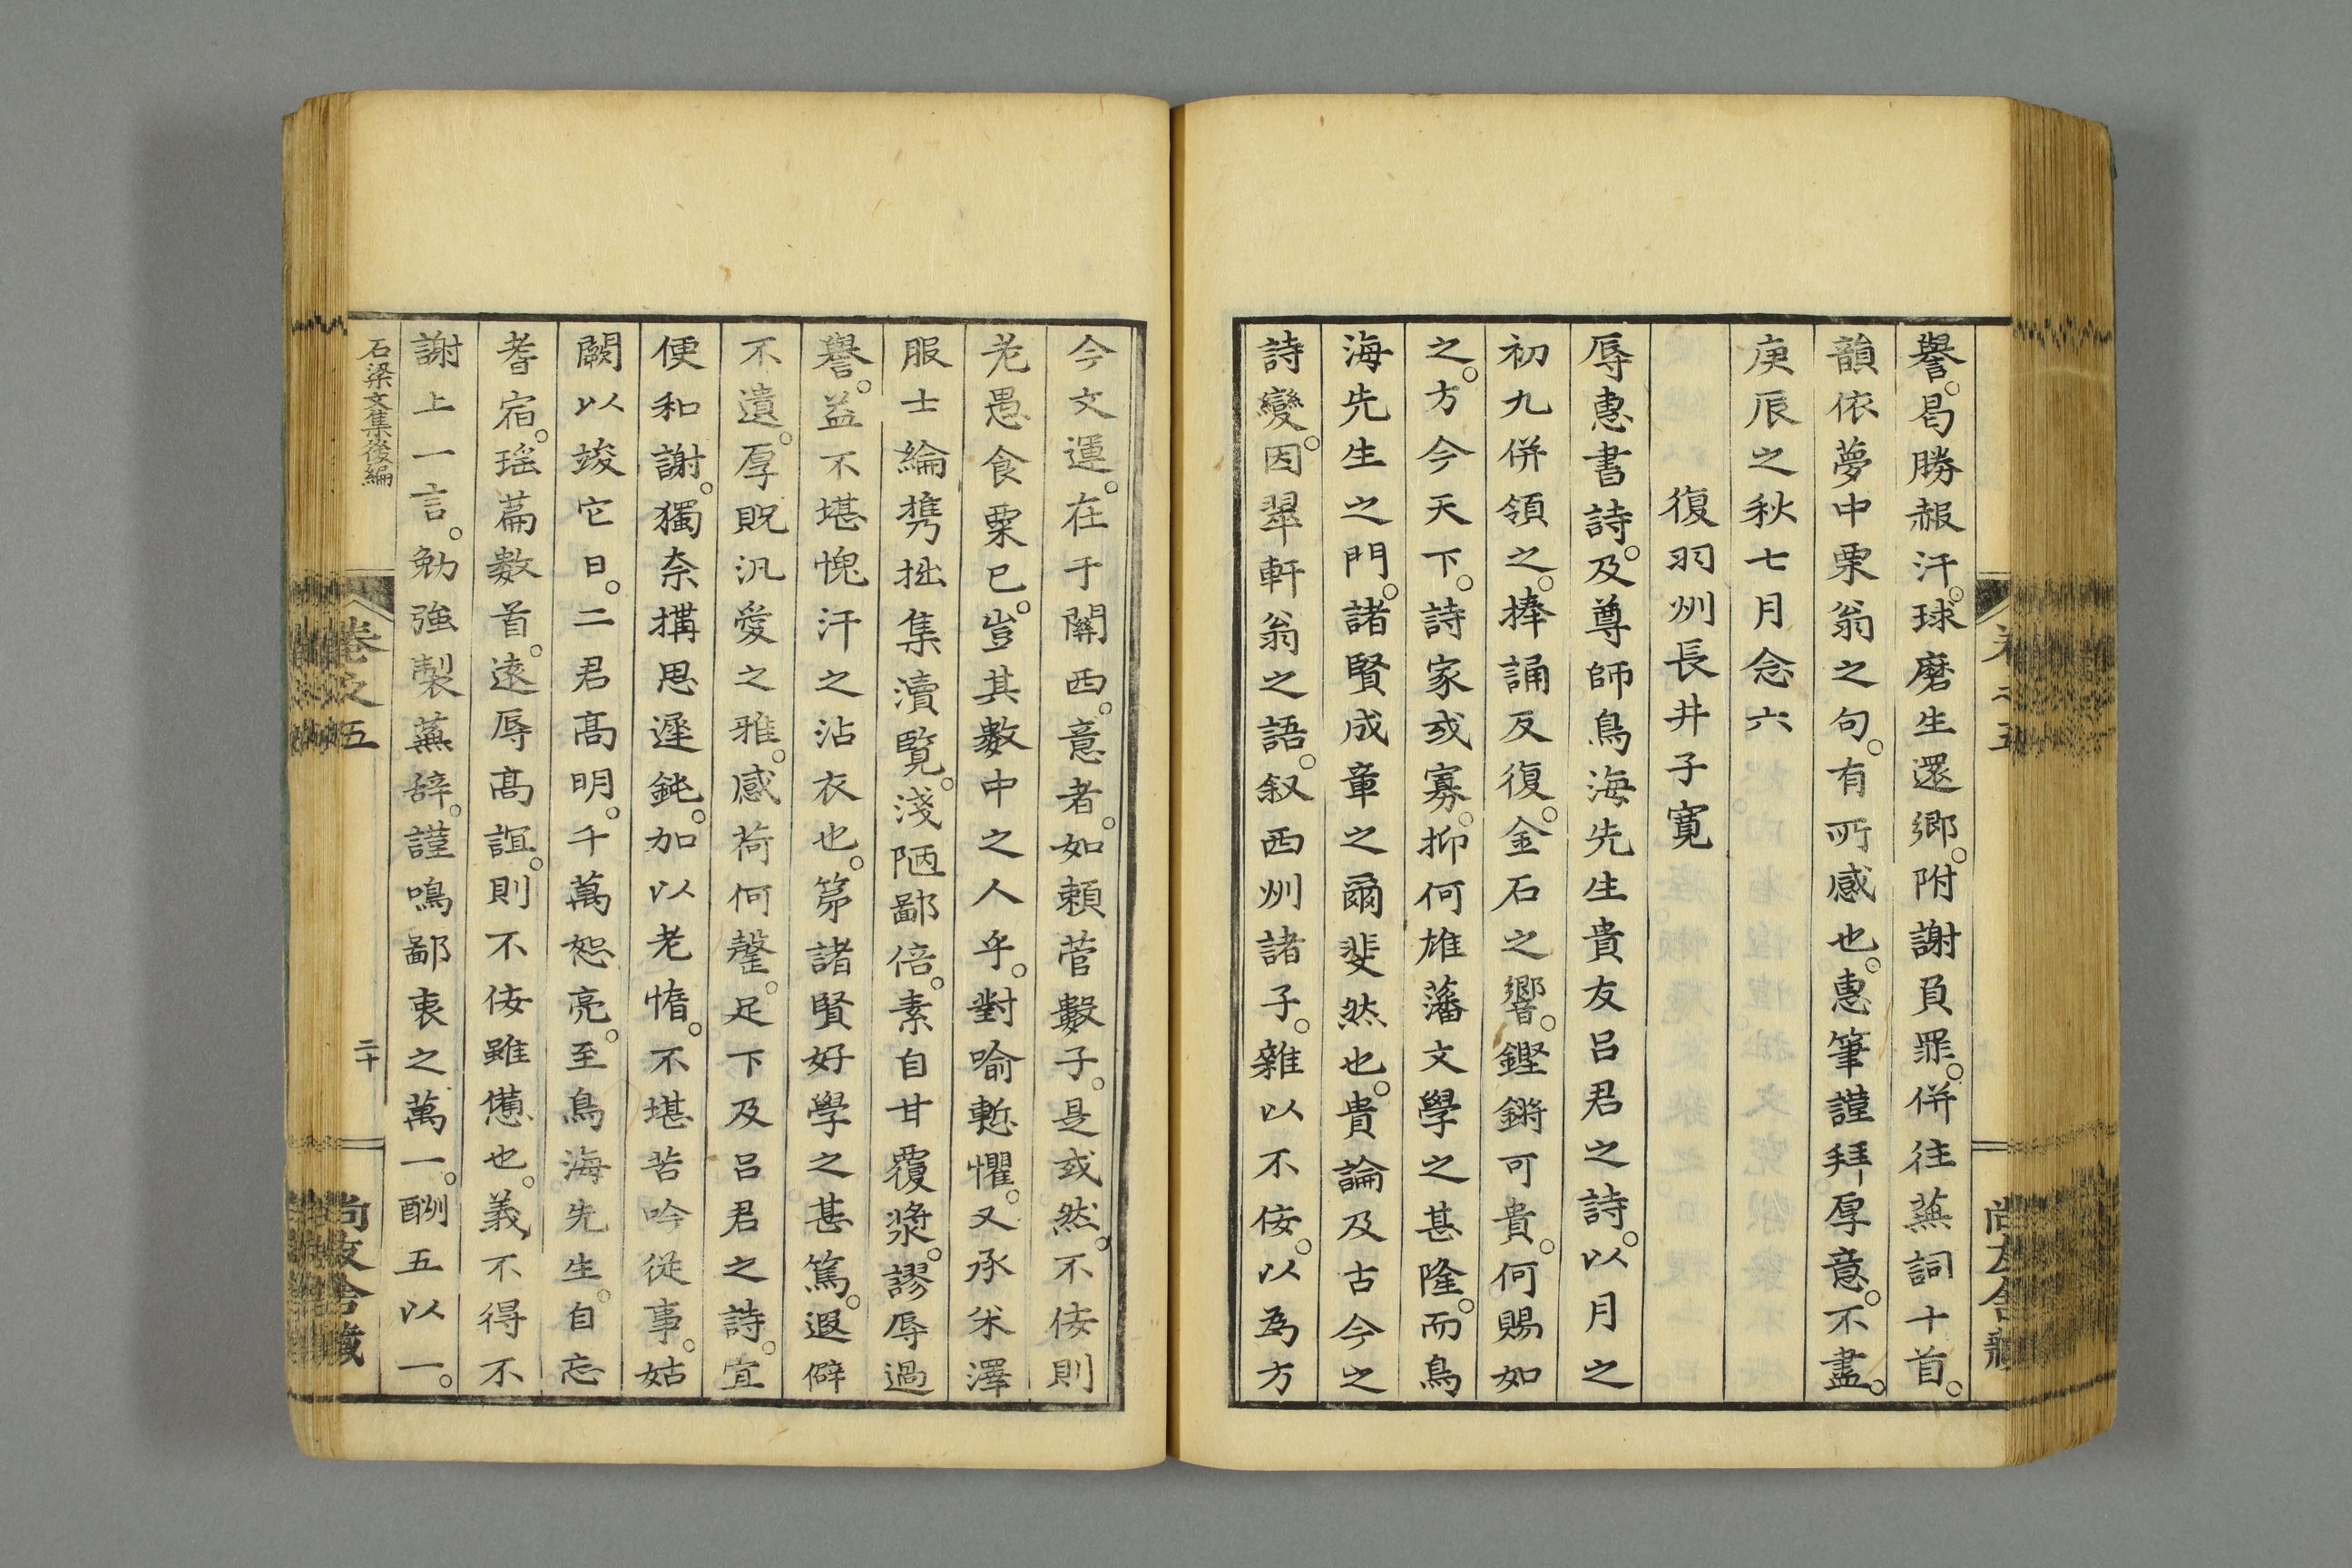 譽。曷勝赧汗。球磨生還鄉。附謝負罪。併往蕪詞十首。
韻依夢中栗翁之句。有所感也。惠筆謹拜厚意。不盡。
庚辰之秋七月念六
復羽州長井子寬
辱惠書詩。及尊師鳥海先生貴友呂君之詩。以月之
初九併領之。捧誦反復。金石之響。鏗鏘可貴。何賜如
之。方今天下。詩家或寡。抑何雄藩文學之甚隆。而鳥
海先生之門。諸賢成章之爾斐然也。貴論及古今之
詩變。因翠軒翁之語。叙西州諸子。雜以不佞。以為方
今文運。在于關西。意者。如賴菅數子。是或然。不佞則
耄愚食粟已。豈其數中之人乎。對喻慙懼。又承米澤
服士綸携拙集瀆覽。淺陋鄙倍。素自甘覆漿。謬辱過
譽。益不堪愧汗之沾衣也。第諸賢好學之甚篤。遐僻
不遺。厚貺汎愛之雅。感荷何罄。足下及呂君之詩。宜
便和謝。獨奈搆思遲鈍。加以老惰。不堪苦吟從事。姑
闕以竣它日。二君高明。千萬恕亮。至鳥海先生。自忘
耆宿。瑤篇數首。遠辱高誼。則不佞雖憊也。義不得不
謝上一言。勉強製蕪辭。謹鳴鄙衷之萬一。酬五以一。
石梁文集後編
卷之五
二十
尚友舍藏